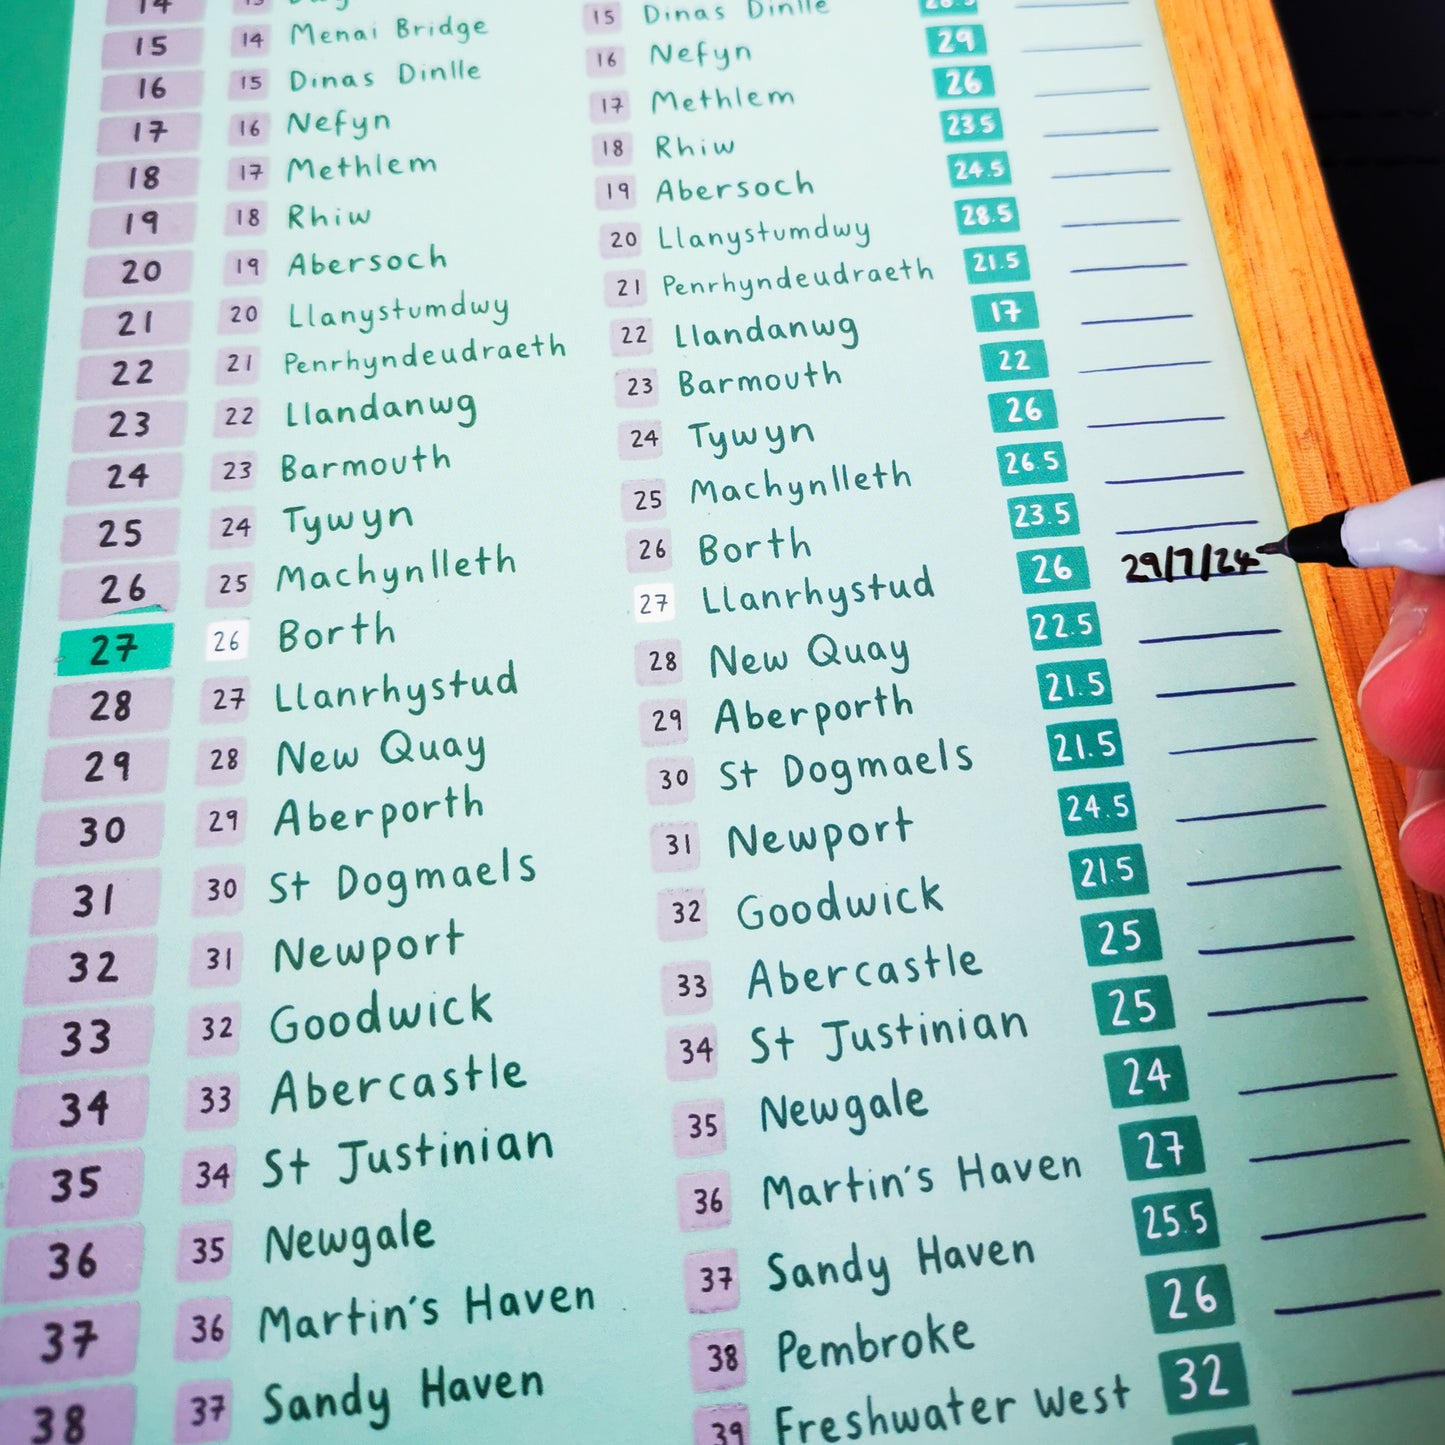 14
15 14 Menai Bridge 15 Dinas Dinlle
16 15 Dinas Dinlle 16 Nefyn 29
17 16 Nefyn 17 Methlem 26
18 17 Methlem 18 Rhiw 23.5
19 18 Rhiw 19 Abersoch 24.5
20 19 Abersoch 20 Llanystumdwy 28.5
21 20 Llanystumdwy 21 Penrhyndeudraeth 21.5
22 21 Penrhyndeudraeth 22 Llandanwg 17
23 22 Llandanwg 23 Barmouth 22
24 23 Barmouth 24 Tywyn 26
25 24 Tywyn 25 Machynlleth 26.5
26 25 Machynlleth 26 Borth 23.5
27 26 Borth 27 Llanrhystud 26 29/7/24
28 27 Llanrhystud 28 New Quay 22.5
29 28 New Quay 29 Aberporth 21.5
30 29 Aberporth 30 St Dogmaels 21.5
31 30 St Dogmaels 31 Newport 24.5
32 31 Newport 32 Goodwick 21.5
33 32 Goodwick 33 Abercastle 25
34 33 Abercastle 34 St Justinian 25
35 34 St Justinian 35 Newgale 24
36 35 Newgale 36 Martin's Haven 27
37 36 Martin's Haven 37 Sandy Haven 25.5
38 37 Sandy Haven 38 Pembroke 26
39 Freshwater West 32